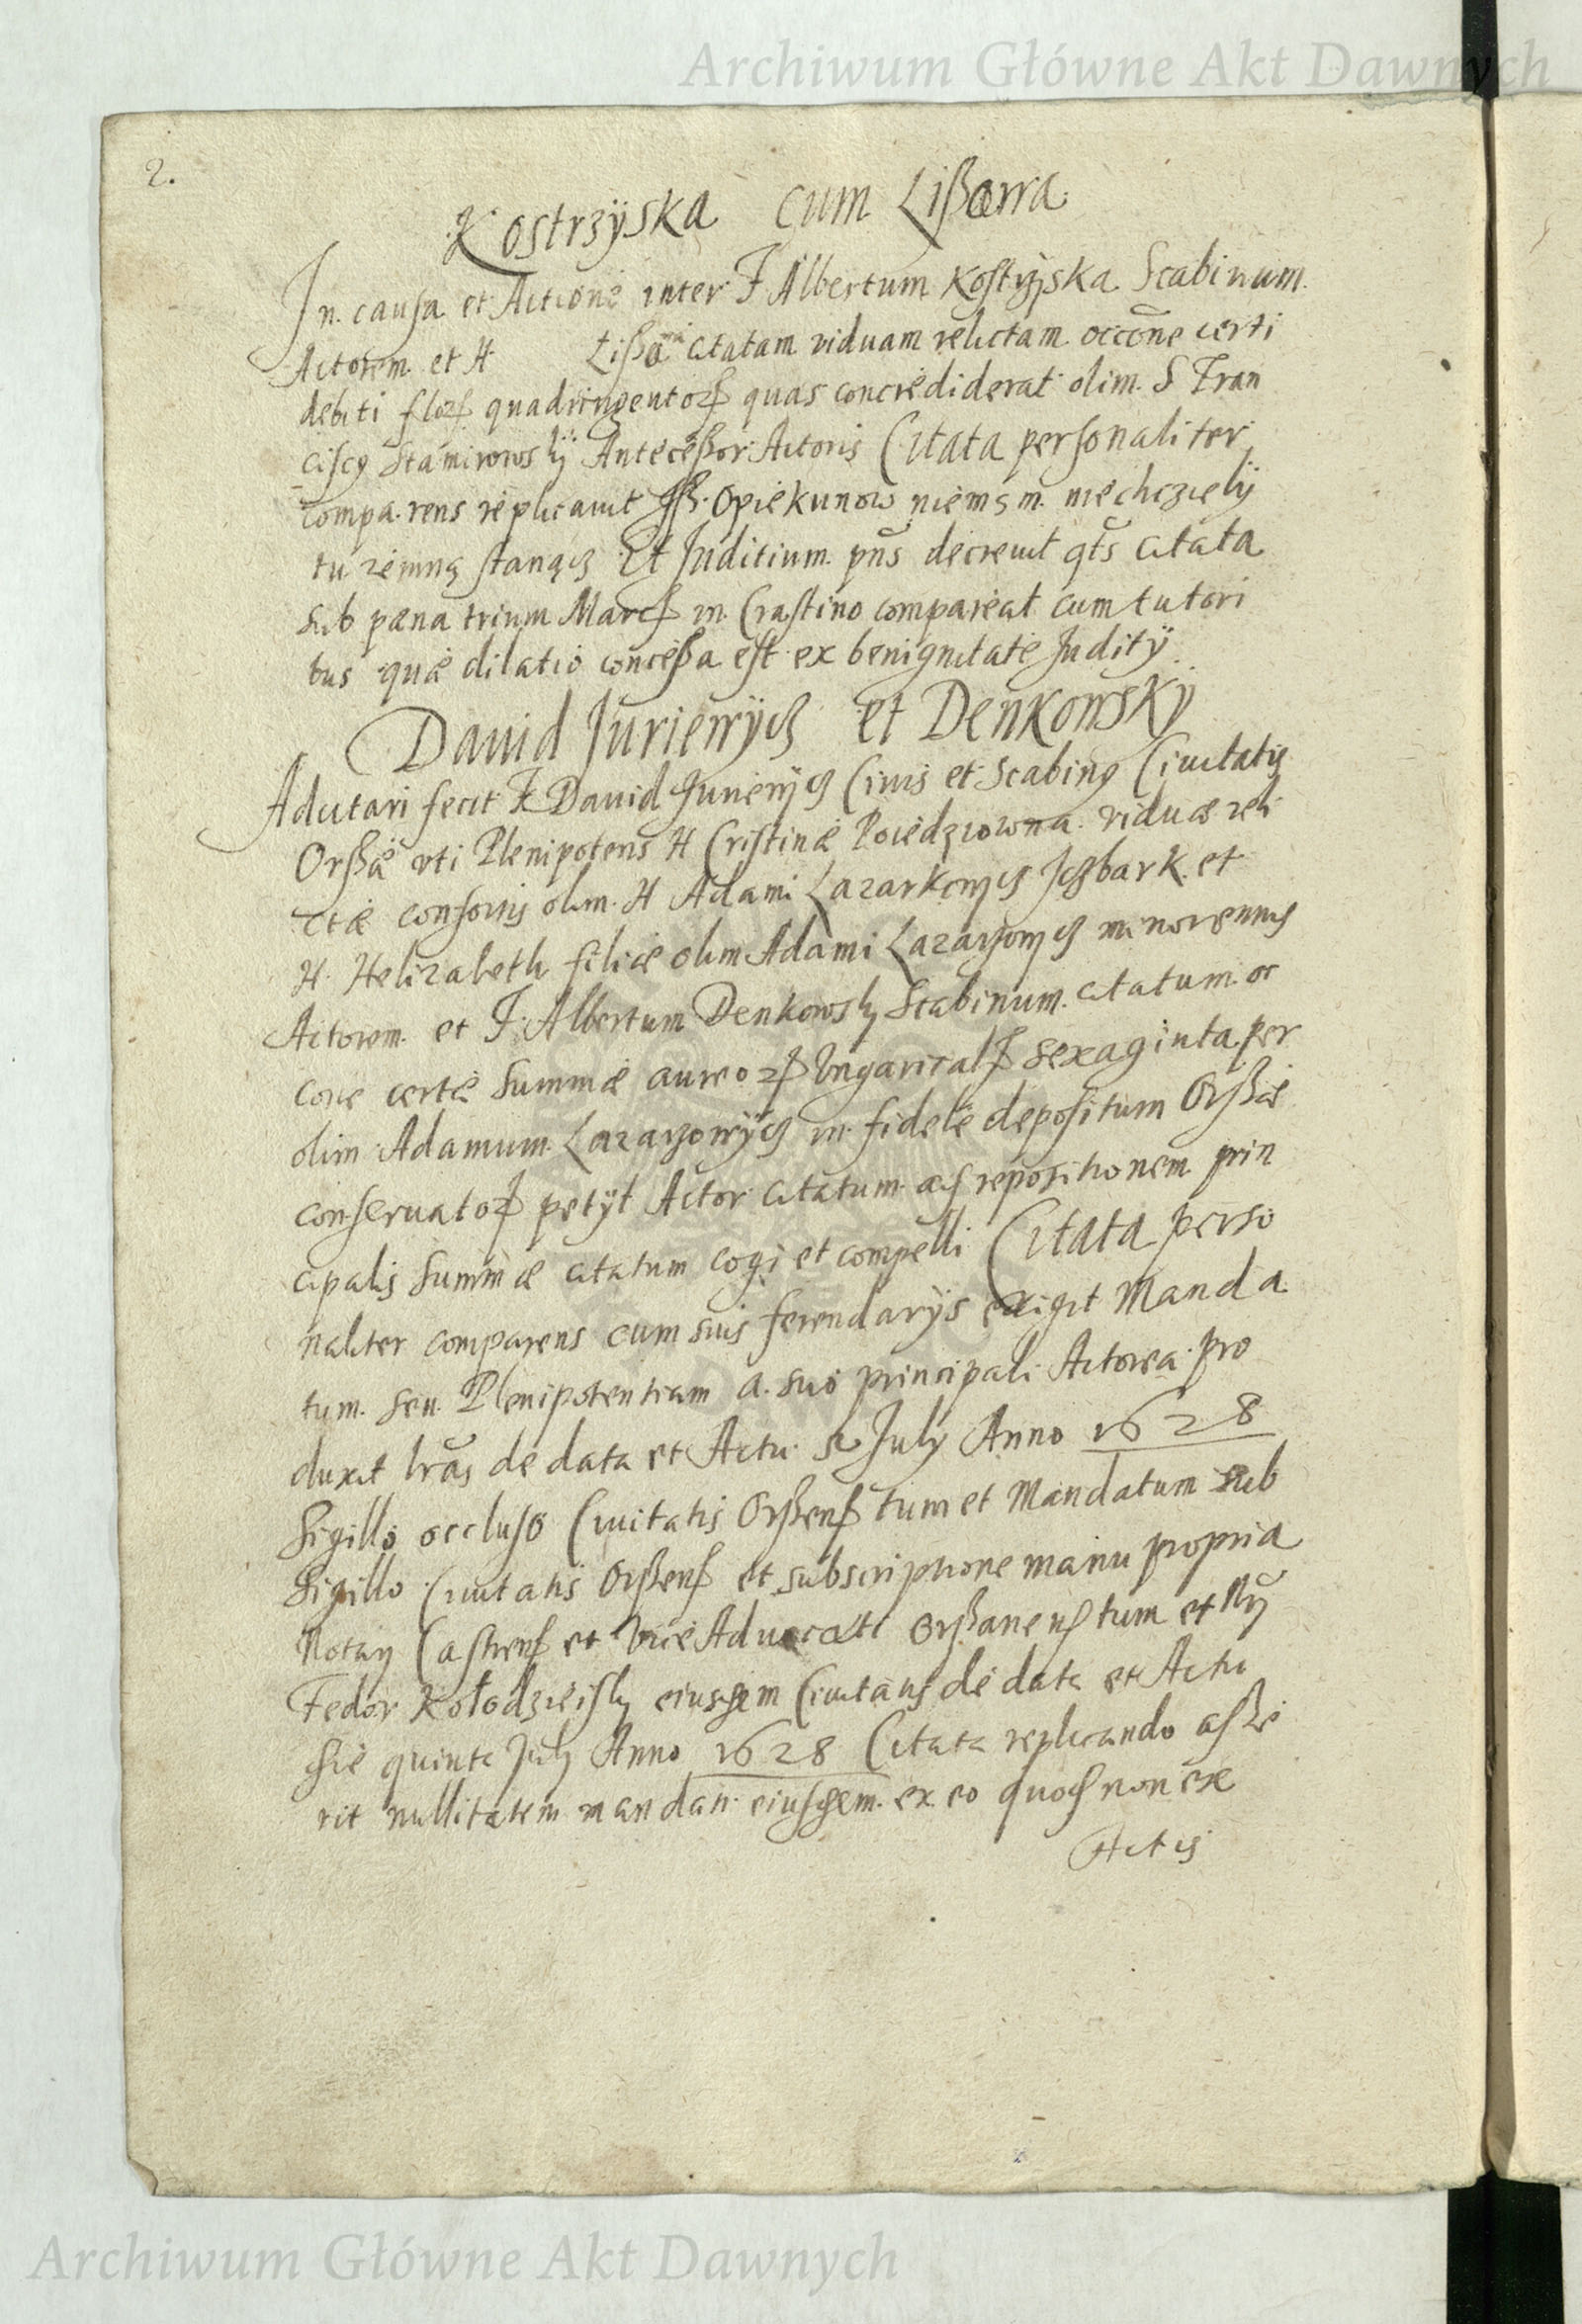 Archiwum Główne Akt Dawnych
2.
Kostrzÿska cum Lißowa
In causa et Actione inter F Albertum Kostrzÿska Scabinum
Actorem et H Lißowa citatam viduam relictam occõne certi
debiti floꝝ quadringentoꝝ quas concrediderat olim S Fran
ciscꝰ Stamirowsky Antecessor Actoris Citata personaliter
comparens replicavit Opiekunow niemąm niechcziely
tu zemną stanącz Et Juditium pñs decrevit qts citata
sub pæna trium Marc in Crastino compareat cum tutori
bus quæ dilatio concessa est ex benignitate Juditÿ
David Juriewÿcz et Denkowskÿ
Adcitari fecit F David Juriewycz Civis et Scabinꝰ Civitatis
Orßæ uti Plenipotens H Cristinæ viduæ reli
ctæ consortis olim H Adami et
H Helizabeth filiæ olim Adami Lazarzowycz minorennis
Actorem et F Albertum Denkowsky Scabinum citatum oc
cone certæ Summæ aureoꝝ Ungaricalꝝ sexaginta per
olim Adamum Lazarzowÿcz in fidele depositum Orßæ
conservatoꝝ petÿt Actor citatum ad repositionem prin
cipalis Summæ citatum cogi et compelli Citata perso
naliter comparens cum suis ferendarÿs exigit Manda
tum seu Plenipotentiam a suo principali Actorea pro
duxit lr̃as de data et Actu July Anno 1628
Sigillo occluso Civitatis Orßens tum et Mandatum sub
Sigillo Civitatis Orßens et subscriptione manu propria
Notary Castrens et Vice Advocati Orßanens tum et
Fedor Kołodzieisky eiusdem Civitatis de data et Actu
die quinta July Anno 1628 Citata replicando asse
rit nullitatem mandati eiusdem ex eo quod non ex
Actis
Archiwum Główne Akt Dawnych